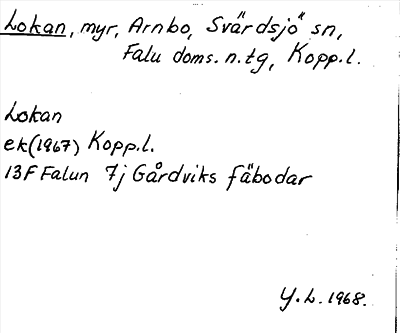 Lokan, myr, Arnbo, Svärdsjö sn,
Falu doms. n. tg, Kopp.l.
Lokan
ek(1967) Kopp.l.
13F Falun 7j Gårdviks fäbodar
Y.L. 1968.